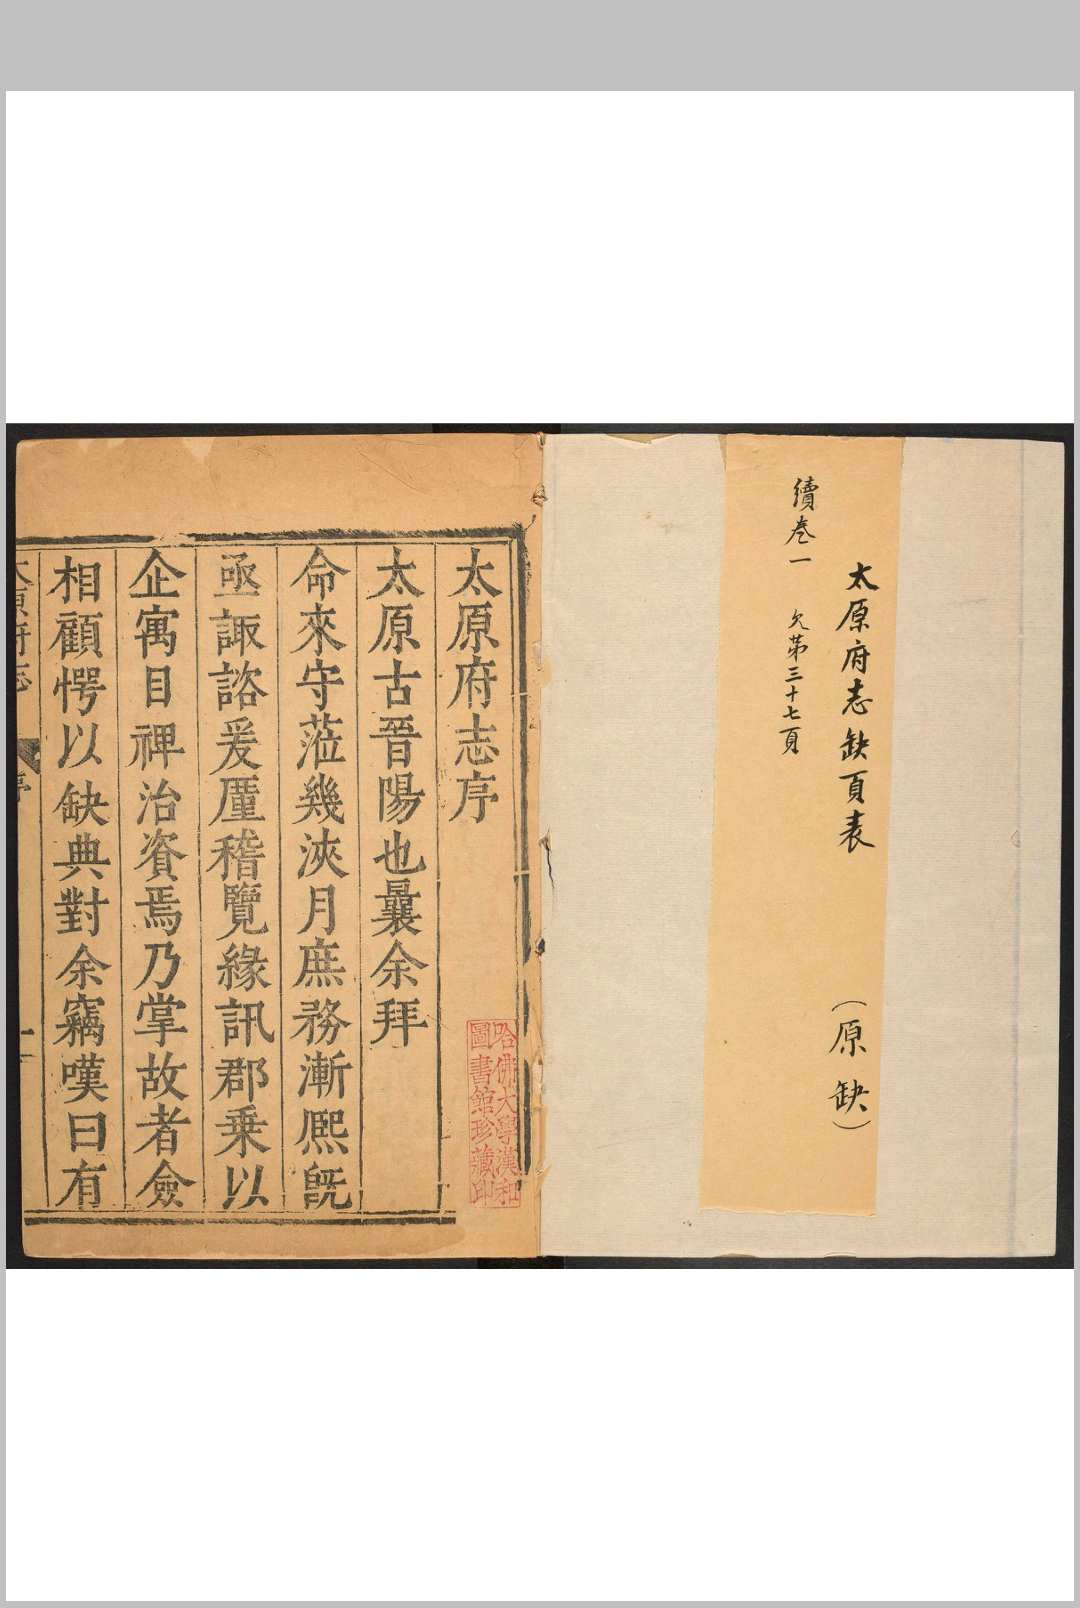 太原府志缺頁表 （原缺）
續卷一 欠第三十七頁
太原府志序
太原古晉陽也曩余拜
命來守蒞幾浹月庶務漸熙旣
亟諏諮爰厪稽覽緣訊郡乗以
企寓目裨治資焉乃掌故者僉
相顧愕以缺典對余竊嘆曰有
太原府志 序 一
哈佛大學漢和
圖書館珍藏印